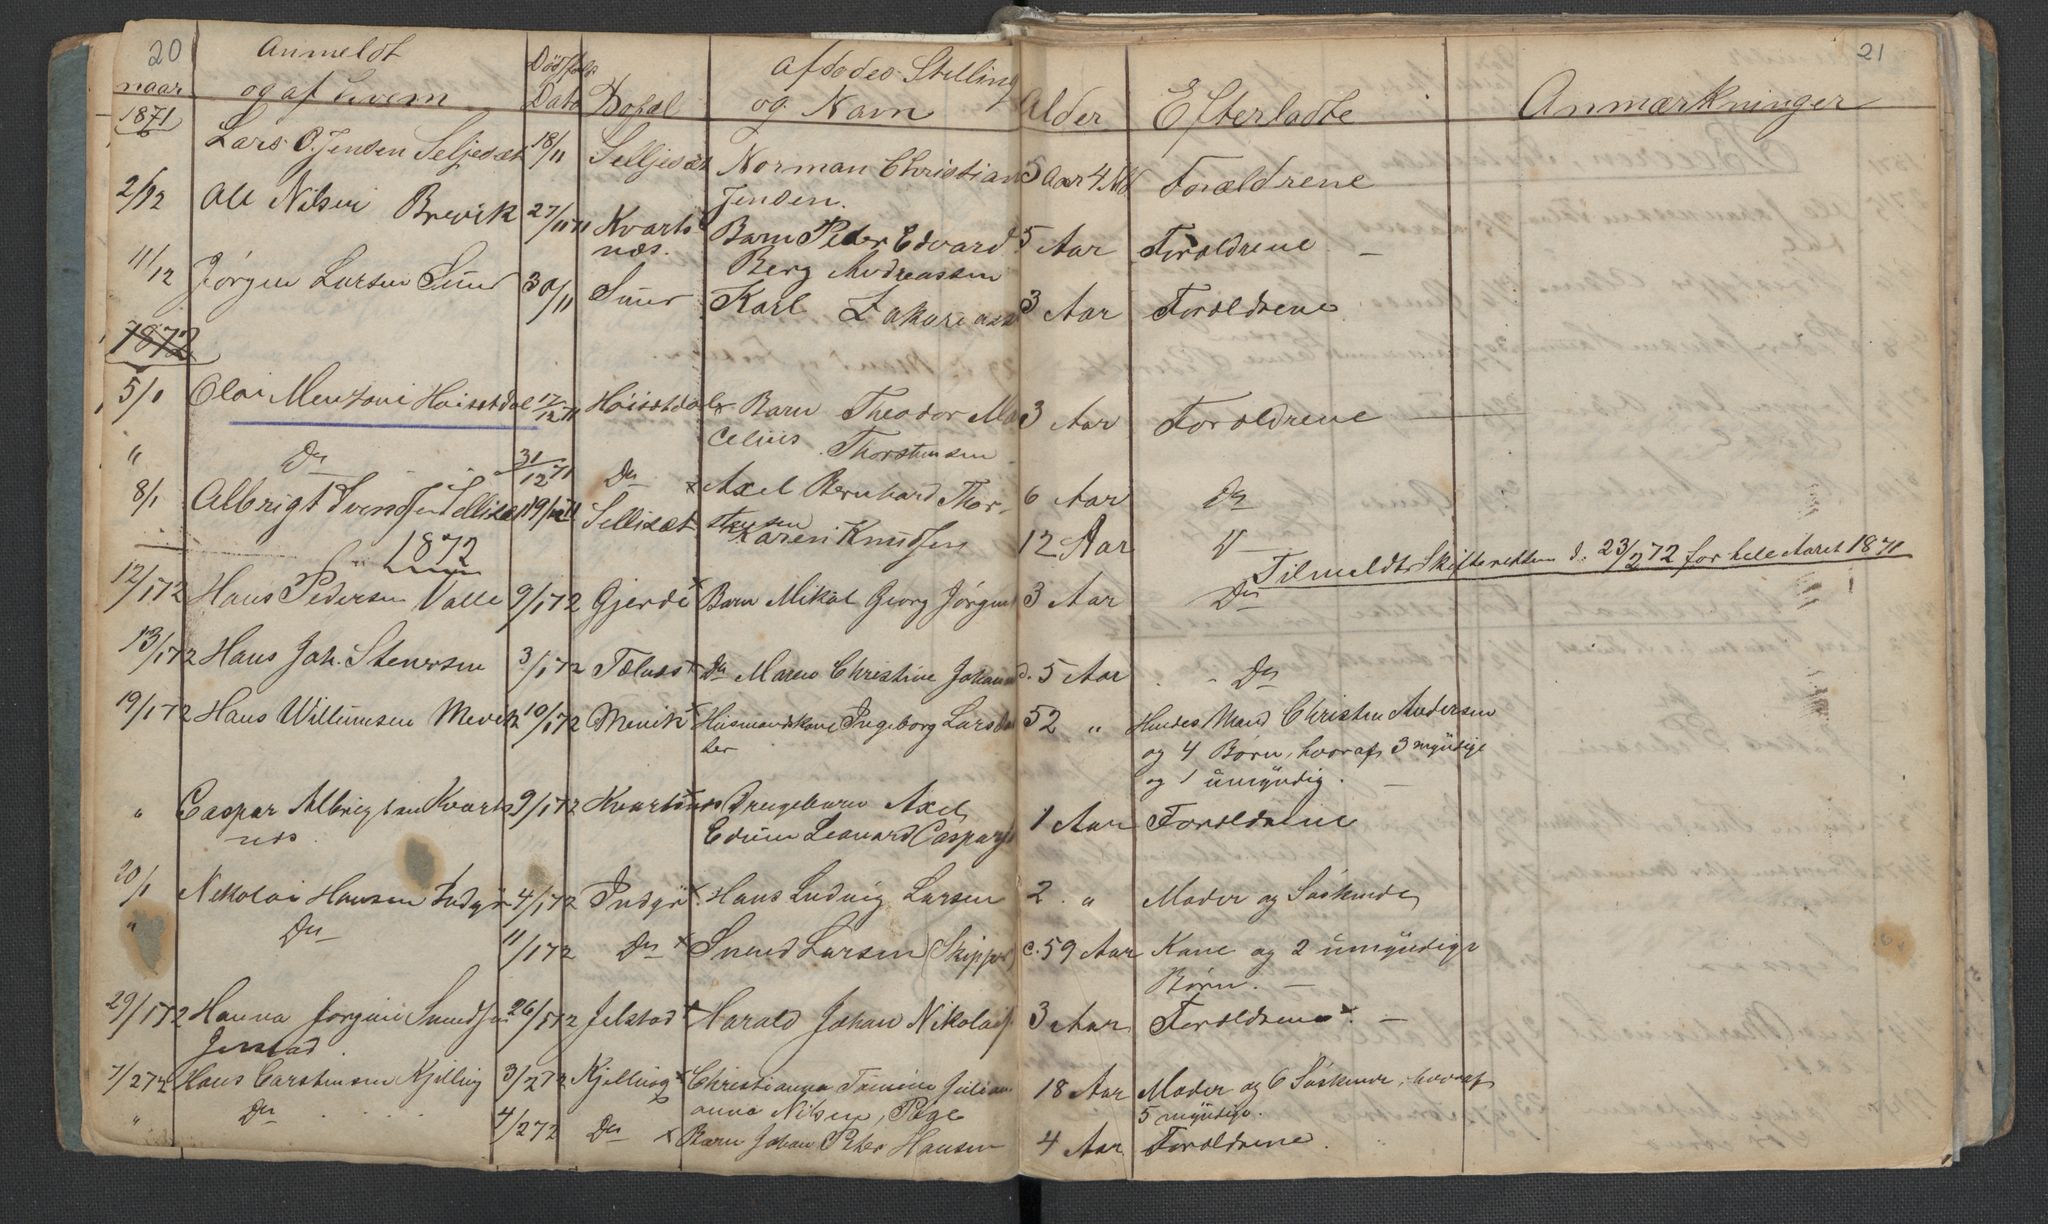 20 Anmeldt Dødsfalds Afdødes Stilling 21
naar og af hvem Dato Bopæl og Navn Alder Efterladte Anmærkninger
1871
Lars O. Jensen Seljesæt 18/11 Selljesæt Norman Christian 5 Aar 4 Md Forældrene
Jensen.
2/12 Ole Nilsen Brevik 27/11 71 Kvarts Barn Peder Edvard 5 Aar Foroldrene —
næs. Berg Andreassen
11/12 Jørgen Larsen Suur 30/11 Suur Karl Zakarias 3 Aar Foroldrene
1872
5/1 Olai Mentzoni Høisetdal 17/12 71 Høisetdal x Barn Theodor Ma 3 Aar Foroldrene —
celius Thorstensen
" Do 31/12 71 Do x Axel Bernhard Thor- 6 Aar Do
8/1 Albrigt Svendsen Sellisæt 19/12 71 Sellisæt Karen Knudsen 12 Aar D
stensen
1872 Tilmeldt Skifteretten d. 23/2 72 for hele Aaret 1871
12/1 72 Hans Pedersen Valle 9/1 72 Gjerde x Barn Mikal Georg Jørgens 3 Aar Do
13/1 72 Hans Joh. Stenersen 3/1 72 Tælnes x Do Maren Christine Johannesd. 5 Aar Do
19/1 72 Hans Willumsen Mevik 10/1 72 Mevik x Huismandskone Ingeborg Larsdat 52 " Hendes Mand Christen Andersen
ter og 4 Børn, hvoraf 3 myndige
og 1 umyndig. —
" Caspar Albrigtsen Kvarts 9/1 72 Kvartsnæs Drengebarn Axel
næs. Edvin Leonard Caspars 1 Aar Foroldrene
20/1 Nikolai Hansen Indyr 4/1 72 Indyr x Hans Ludvig Larsen 2 " Moder og Søskende
" Do 11/1 72 Do x Svend Larsen (Skipper) c. 59 Aar Kone og 2 umyndige
Børn. —
29/1 72 Hanna Jørgine Svendsen 26/1 72 Jelstad x Harald Johan Nikolais 3 Aar Foroldrene. —
Jelstad.
7/2 72 Hans Carstensen Kjelling 3/2 72 Kjelling x Christianna Tomine Julian 18 Aar Moder og 6 Søskende, hvoraf
anna Nilsen, Pige 5 myndige.
" Do 4/2 72 Do x Barn Johan Peter Hansen 4 Aar Foroldrene.